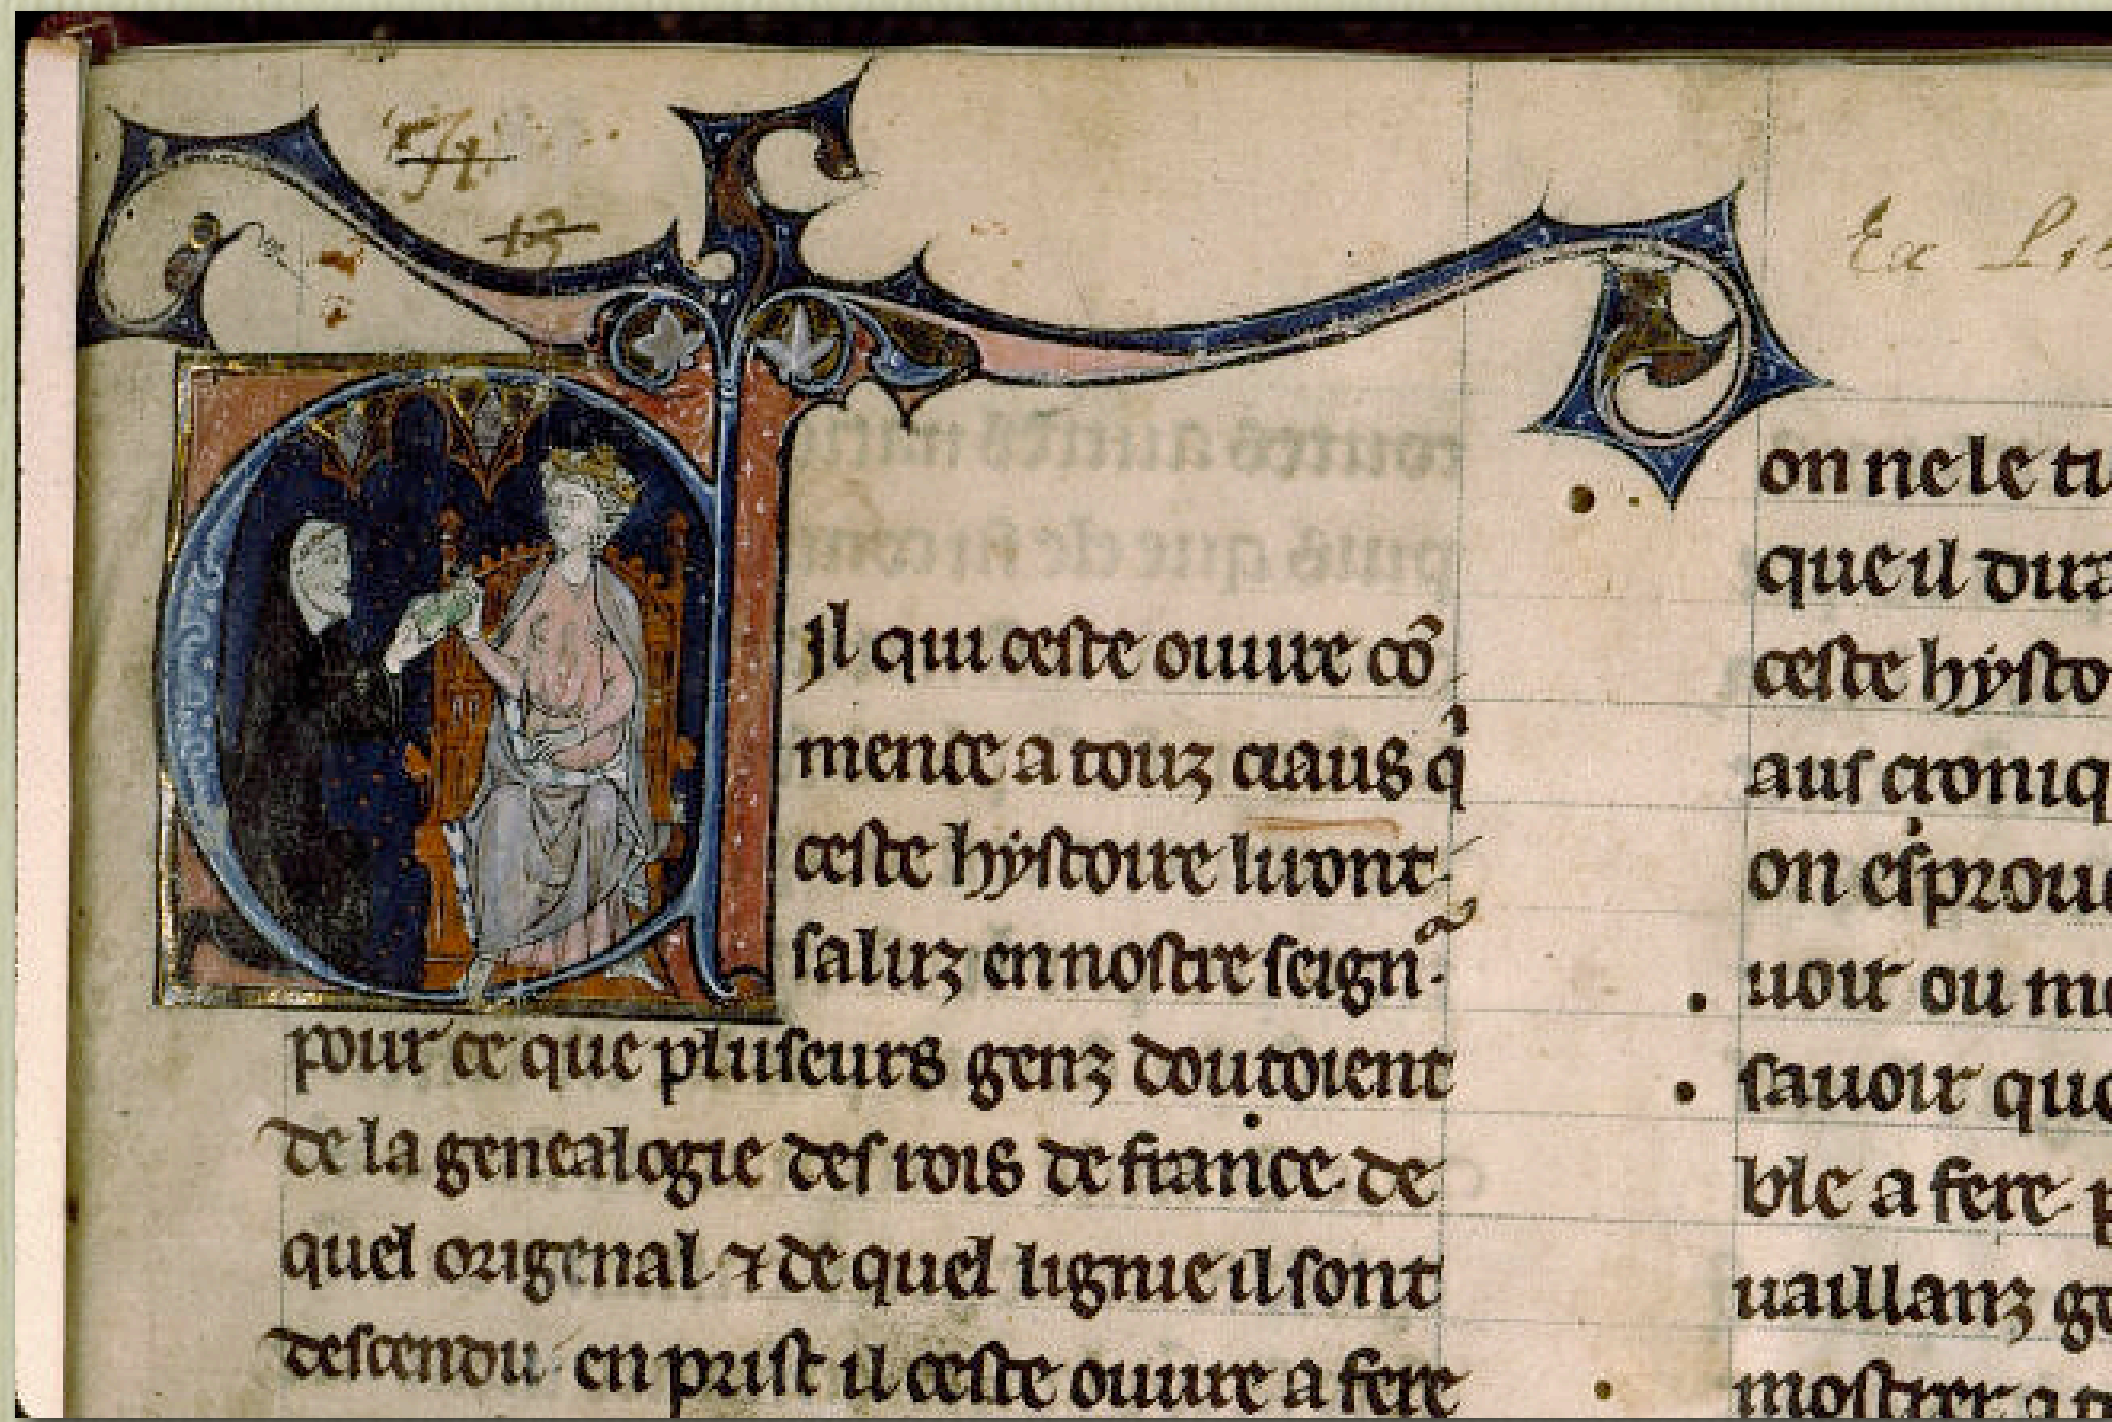 Ex Lib
Cil qui ceste ouure cō
mence a touz ciaus q̇
ceste hystoire liront·
saluz en nostre seign᷑·
pour ce que pluseurs genz doutoient
de la genealogie des rois de france de
quel origenal ⁊ de quel lignie il sont
descendu· en prist il ceste ouure a fere
on ne le ti
que il dura
ceste hysto
aus croniq
on esproue
uoir ou me
sauoir que
ble a fere· p
uaillanz ge
mostrer a t